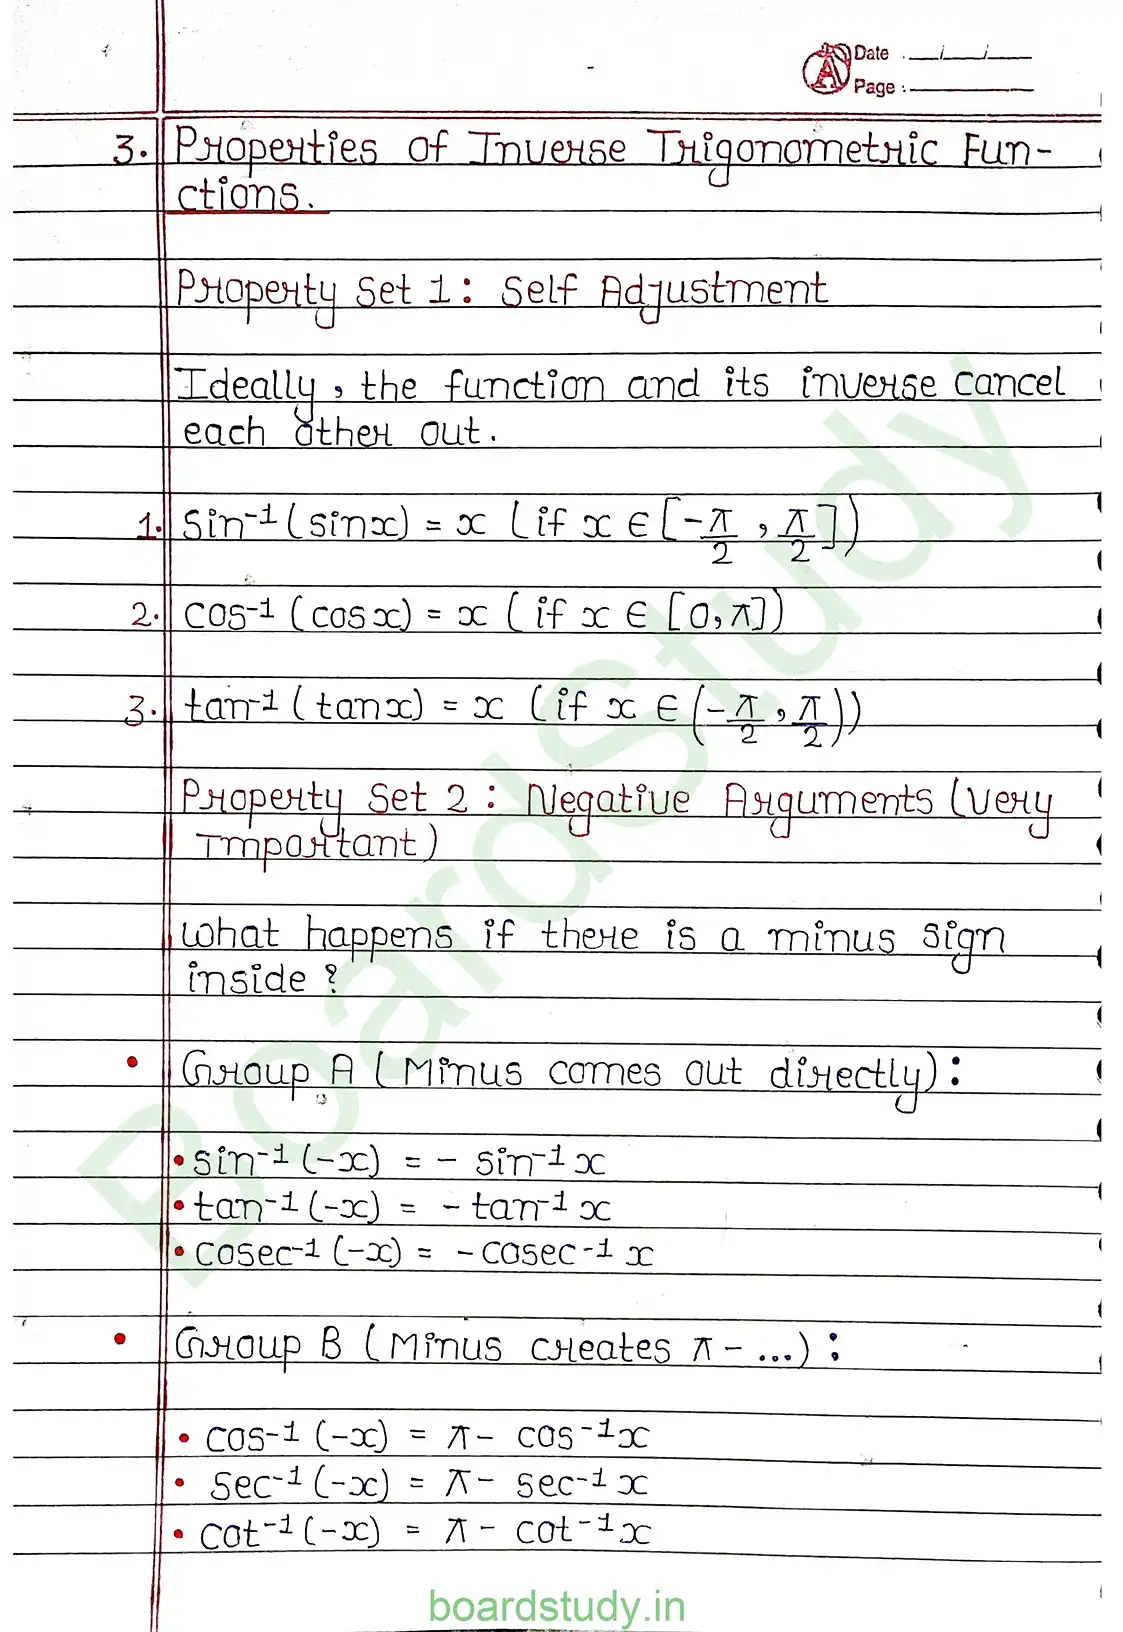 Date : __/__/__
Page :
3. Properties of Inverse Trigonometric Fun-
ctions.
Property Set 1: Self Adjustment
Ideally, the function and its inverse cancel
each other out.
1. sin⁻¹(sinx) = x (if x ∈ [-π/2, π/2])
2. cos⁻¹(cosx) = x (if x ∈ [0,π])
3. tan⁻¹(tanx) = x (if x ∈ (-π/2, π/2))
Property Set 2: Negative Arguments (Very
Important)
What happens if there is a minus sign
inside?
• Group A (Minus comes out directly):
• sin⁻¹(-x) = - sin⁻¹x
• tan⁻¹(-x) = - tan⁻¹x
• cosec⁻¹(-x) = - cosec⁻¹x
• Group B (Minus creates π - ...):
• cos⁻¹(-x) = π - cos⁻¹x
• sec⁻¹(-x) = π - sec⁻¹x
• cot⁻¹(-x) = π - cot⁻¹x
BoardStudy
boardstudy.in